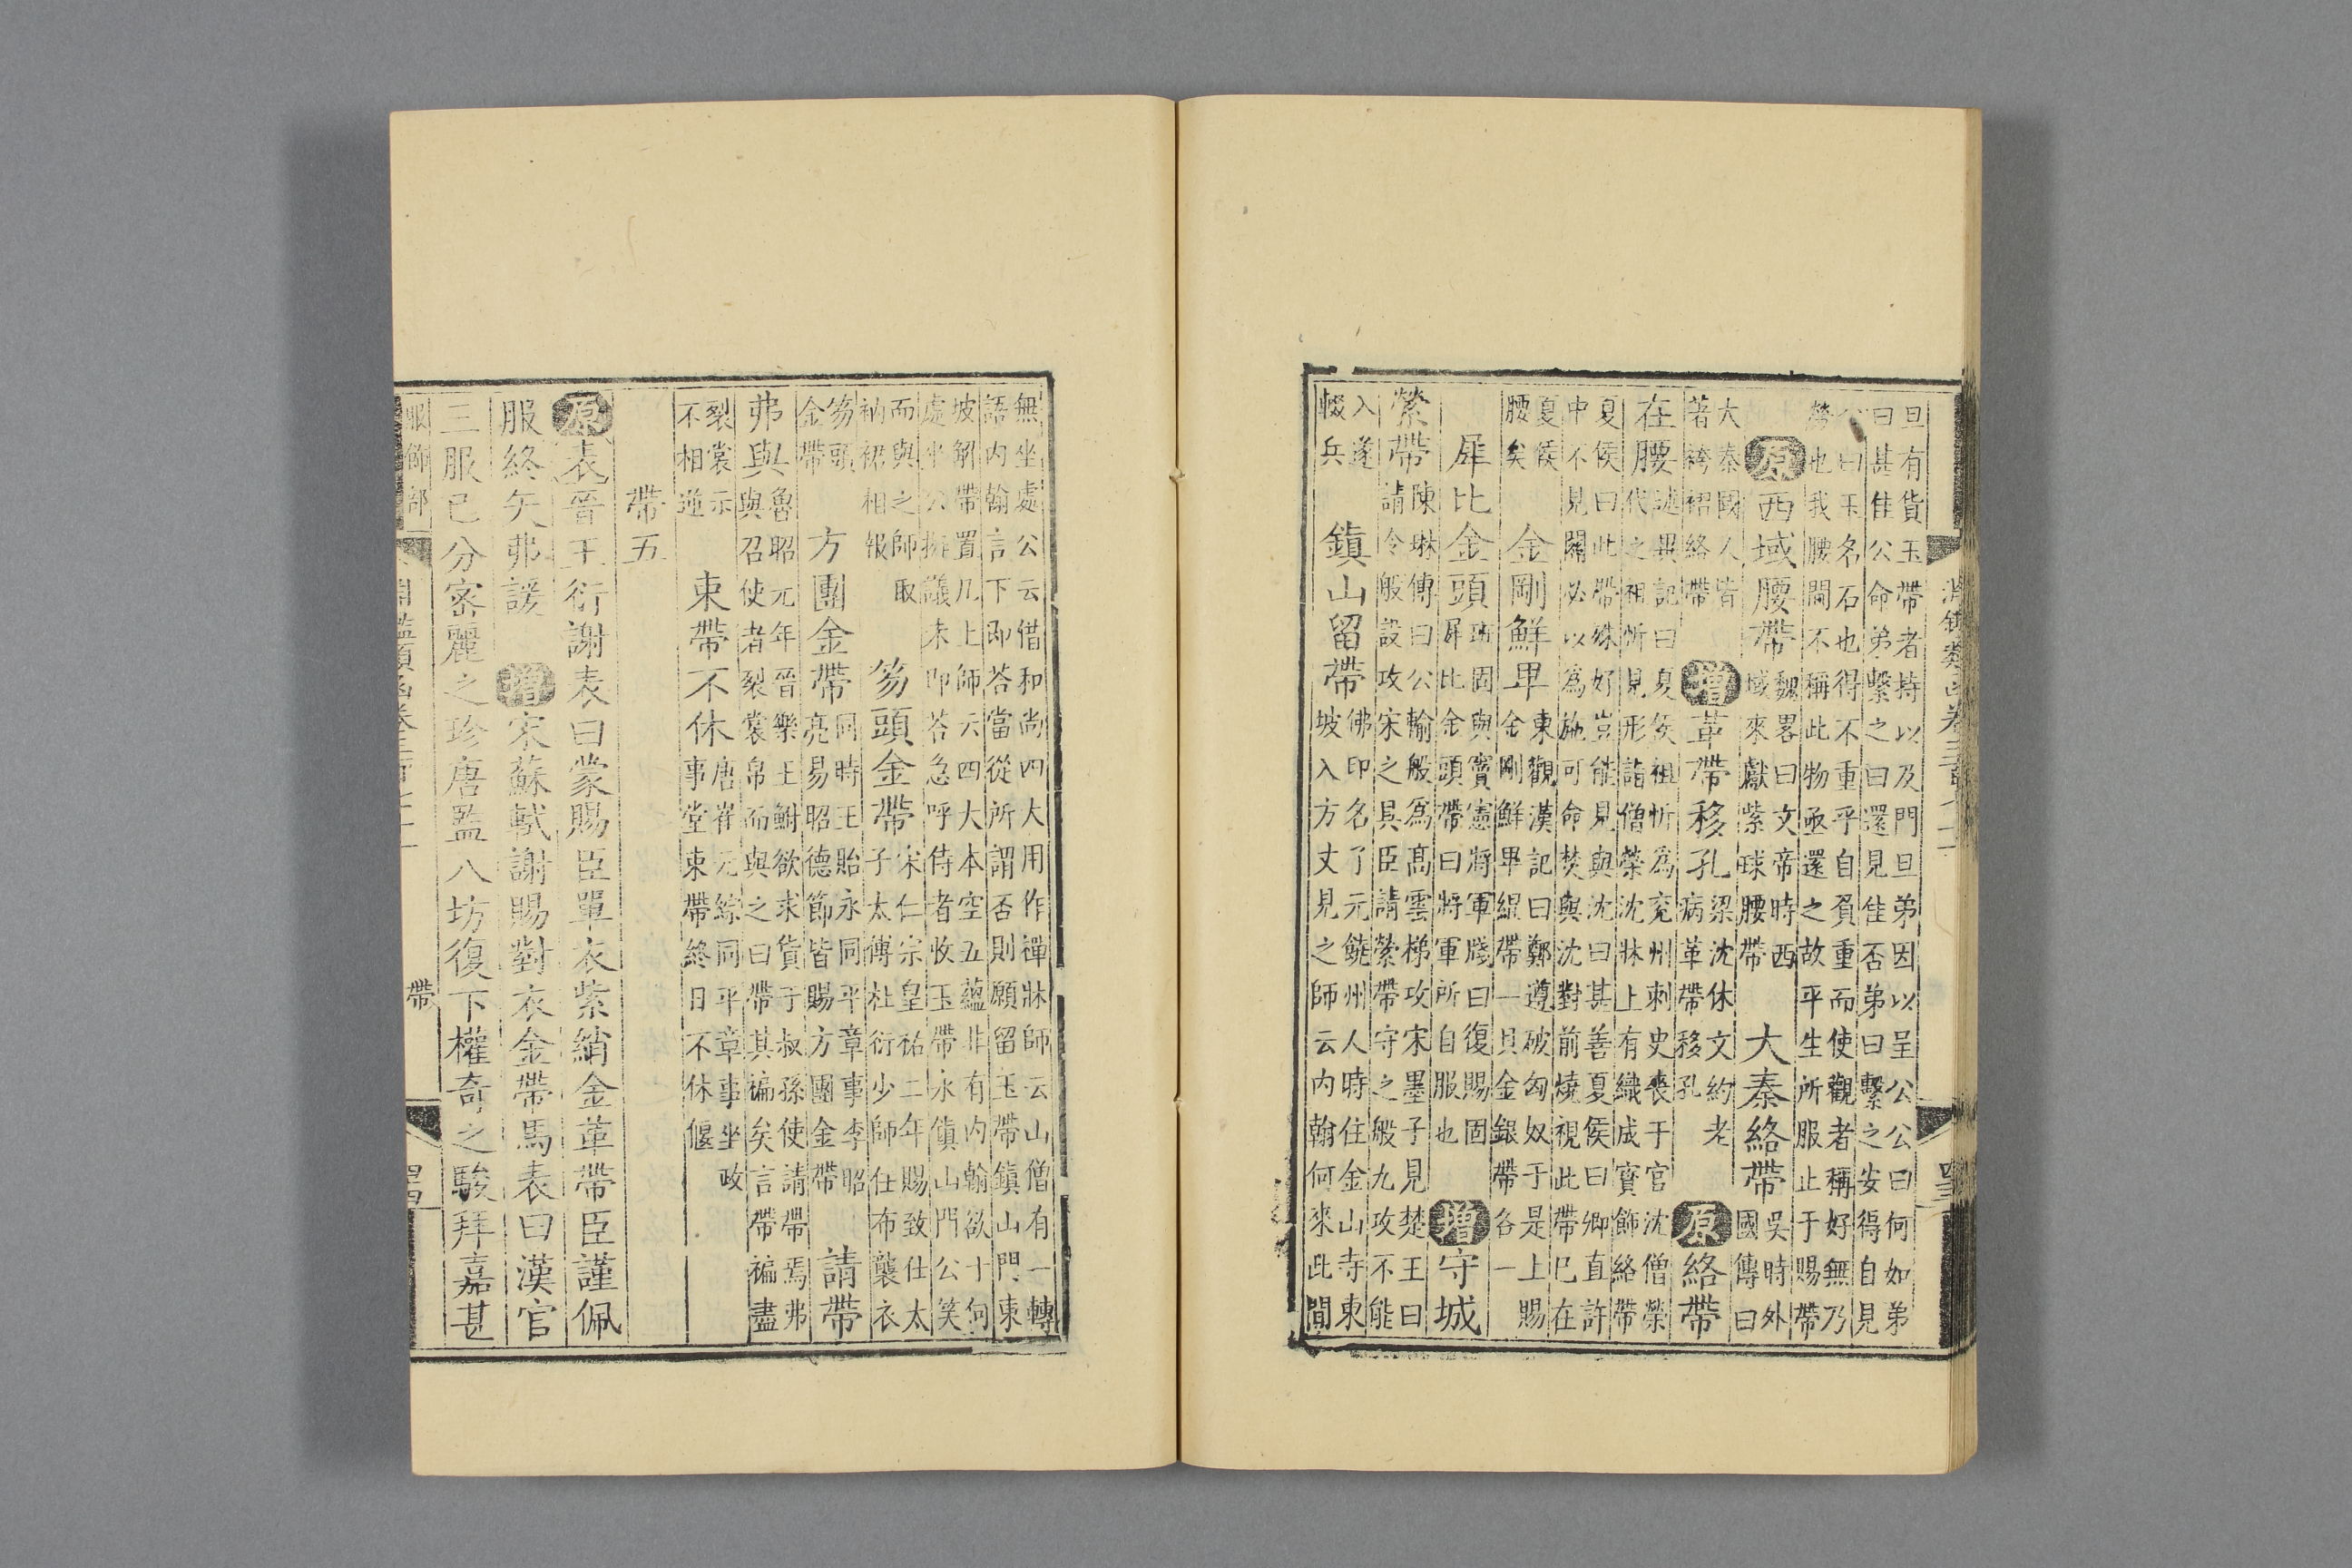 旦有貨玉帶者持以及門旦弟因以呈公公曰何如弟曰甚佳公命弟繫之曰還見佳否弟曰繫之安得自見
公曰玉名石也得不重乎自負重而使觀者稱好無乃勞也我腰間不稱此物亟還之故平生所服止于賜帶
原西域腰帶魏畧曰文帝時西域來獻紫球腰帶大秦絡帶吳時外國傳曰
大秦國人皆著袴褶絡帶增革帶移孔梁沈休文約老病革帶移孔原絡帶
在腰述異記曰夏侯祖忻為兗州刺史喪于官沈僧榮代之祖忻見形詣僧榮沈牀上有織成寳飾絡帶
夏侯曰此帶殊好豈能見與沈曰甚善夏侯曰卿直許中不見關必以為施可命焚與沈對前燒視此帶已在
夏侯腰矣金剛鮮卑東觀漢記曰鄭遵破匈奴于是上賜金剛鮮畢緄帶一具金銀帶各一
犀比金頭班固與竇憲將軍牋曰復賜固犀比金頭帶曰將軍所自服也增守城
縈帶陳琳傳曰公輸般為髙雲梯攻宋墨子見楚王曰請令般設攻宋之具臣請縈帶守之般九攻不能
入遂輟兵鎮山留帶佛印名了元饒州人時住金山寺東坡入方丈見之師云内翰何來此間
無坐處公云借和尚四大用作禪牀師云山僧有一轉語内翰言下即荅當從所謂否則願留玉帶鎮山門東
坡解帶置几上師云四大本空五蘊非有内翰欲于何處坐公擬議未即荅急呼侍者收玉帶永鎮山門公笑
而與之師取衲裙相報笏頭金帶宋仁宗皇祐二年賜致仕太子太傅杜衍少師任布襲衣
笏頭金帶方團金帶同時王貽永同平章事李昭亮易昭德節皆賜方團金帶請帶
弗與魯昭元年晉樂王鮒欲求貨于叔孫使請帶焉弗與召使者裂裳帛而與之曰帶其褊矣言帶褊盡
裂裳示不相逆束帶不休唐崔元綜同平章事坐政事堂束帶終日不休偃
帶五
原表晉王衍謝表曰蒙賜臣單衣紫綃金革帶臣謹佩
服終矢弗諼增宋蘇軾謝賜對衣金帶馬表曰漢官
三服已分密麗之珍唐監八坊復下權奇之駿拜嘉甚
服飾部
淵鑑類函卷三百七十一
帶